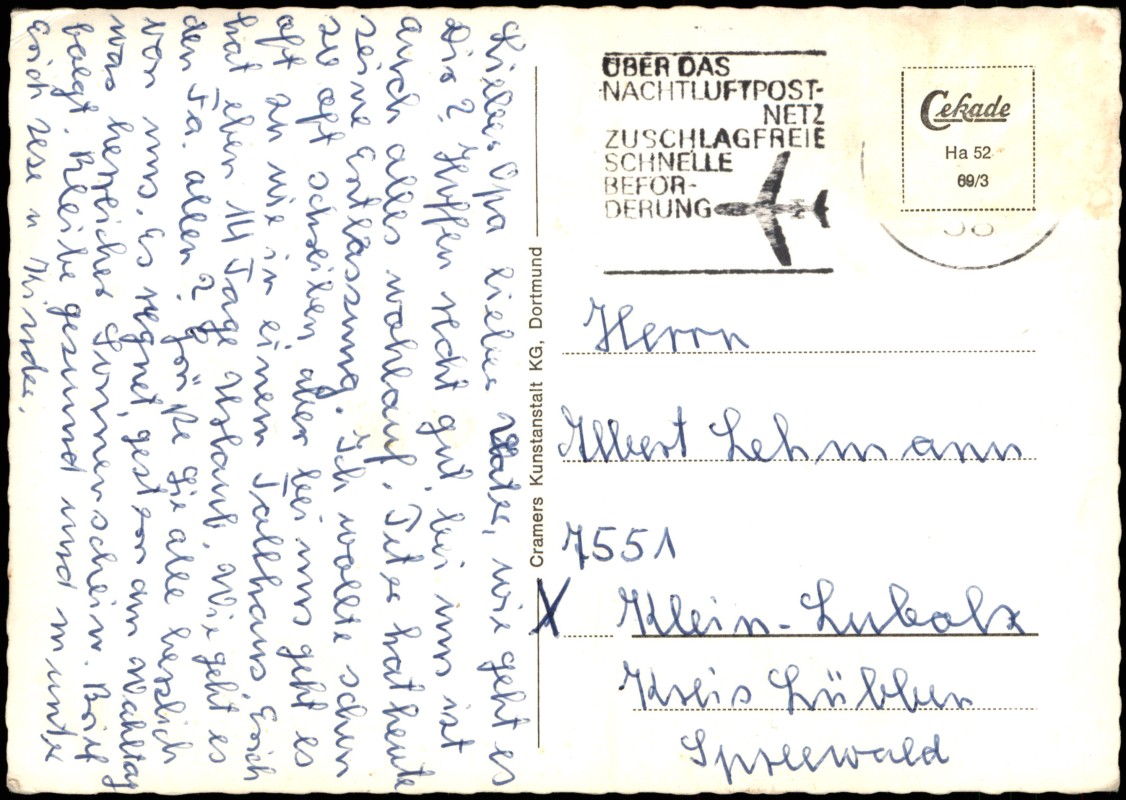 Lieber Opa lieber Vater, wie geht es
Dir? Hoffen recht gut, bei uns ist
auch alles wohlauf. Peter hat heute
seine Entlassung. Ich wollte schon
so oft schreiben, aber bei uns geht es
oft zu wie in einem Tollhaus, Erich
hat eben 14 Tage Urlaub. Wie geht es
den Fa. allen? Grüße Sie alle herzlich
von uns. Es regnet, gestern am Wahltag
war herrlicher Sonnenschein. Brief
folgt. Bleibe gesund und munter
Erich u Kinder.
Cramers Kunstanstalt KG, Dortmund
ÜBER DAS
NACHTLUFTPOST-
NETZ
ZUSCHLAGFREIE
SCHNELLE
BEFÖR-
DERUNG
Cekade
Ha 52
69/3
Herrn
Albert Lehmann
7551
X Klein-Lubolz
Kreis Lübben
Spreewald